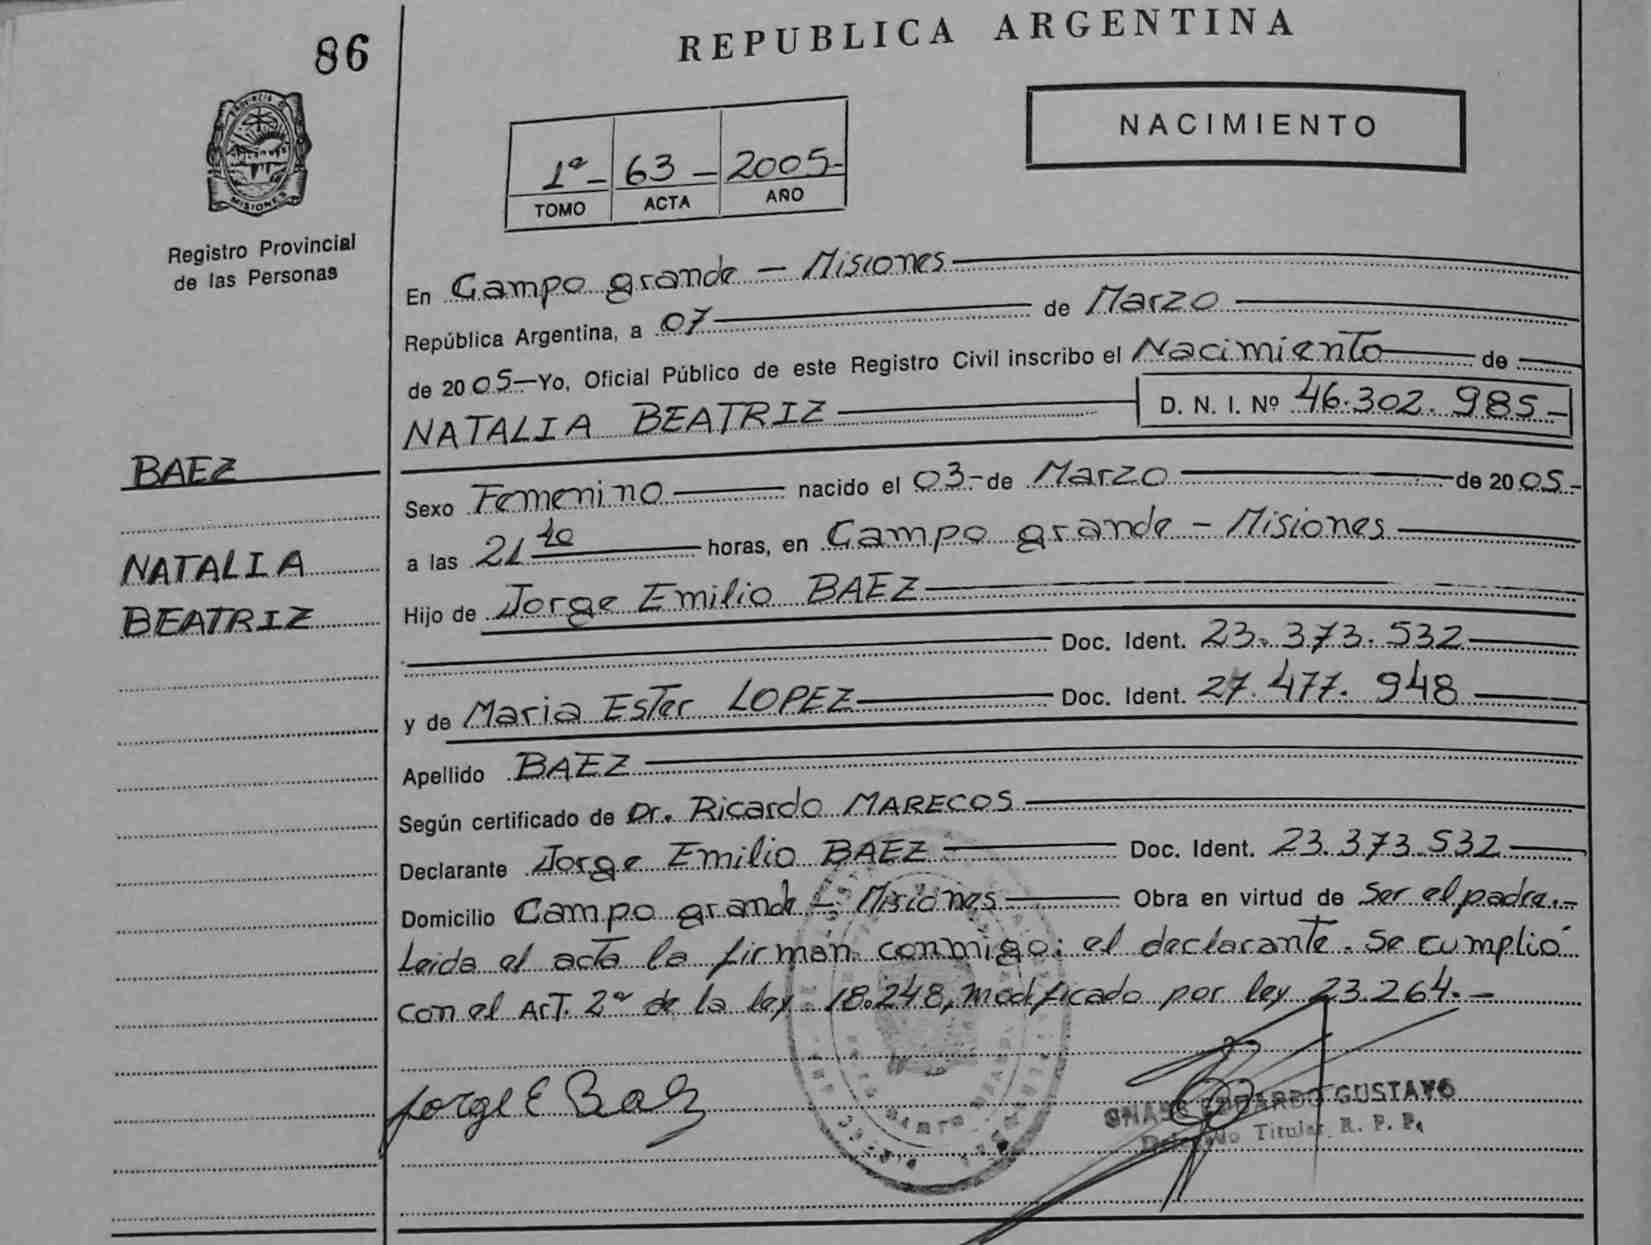 86
REPUBLICA ARGENTINA
NACIMIENTO
PROVINCIA DE
MISIONES
Registro Provincial
de las Personas
1º- 63 - 2005-
TOMO ACTA AÑO
En Campo grande - Misiones
República Argentina, a 07 de Marzo
de 20 05 Yo, Oficial Público de este Registro Civil inscribo el Nacimiento de
NATALIA BEATRIZ D. N. I. Nº 46.302.985-
BAEZ
NATALIA
BEATRIZ
Sexo Femenino nacido el 03- de Marzo de 20 05.-
a las 21 horas, en Campo grande - Misiones
Hijo de Jorge Emilio BAEZ
Doc. Ident. 23.373.532
y de Maria Ester LOPEZ Doc. Ident. 27.477.948
Apellido BAEZ
Según certificado de Dr. Ricardo MARECOS
Declarante Jorge Emilio BAEZ Doc. Ident. 23.373.532
Domicilio Campo grande - Misiones Obra en virtud de Ser el padre.-
Leida el acta la firman conmigo: el declarante. Se cumplió
con el Art. 2º de la ley 18.248, modificado por ley 23.264.-
Jorge E Baez
EDUARDO GUSTAVO
Delegado Titular R. P. P.